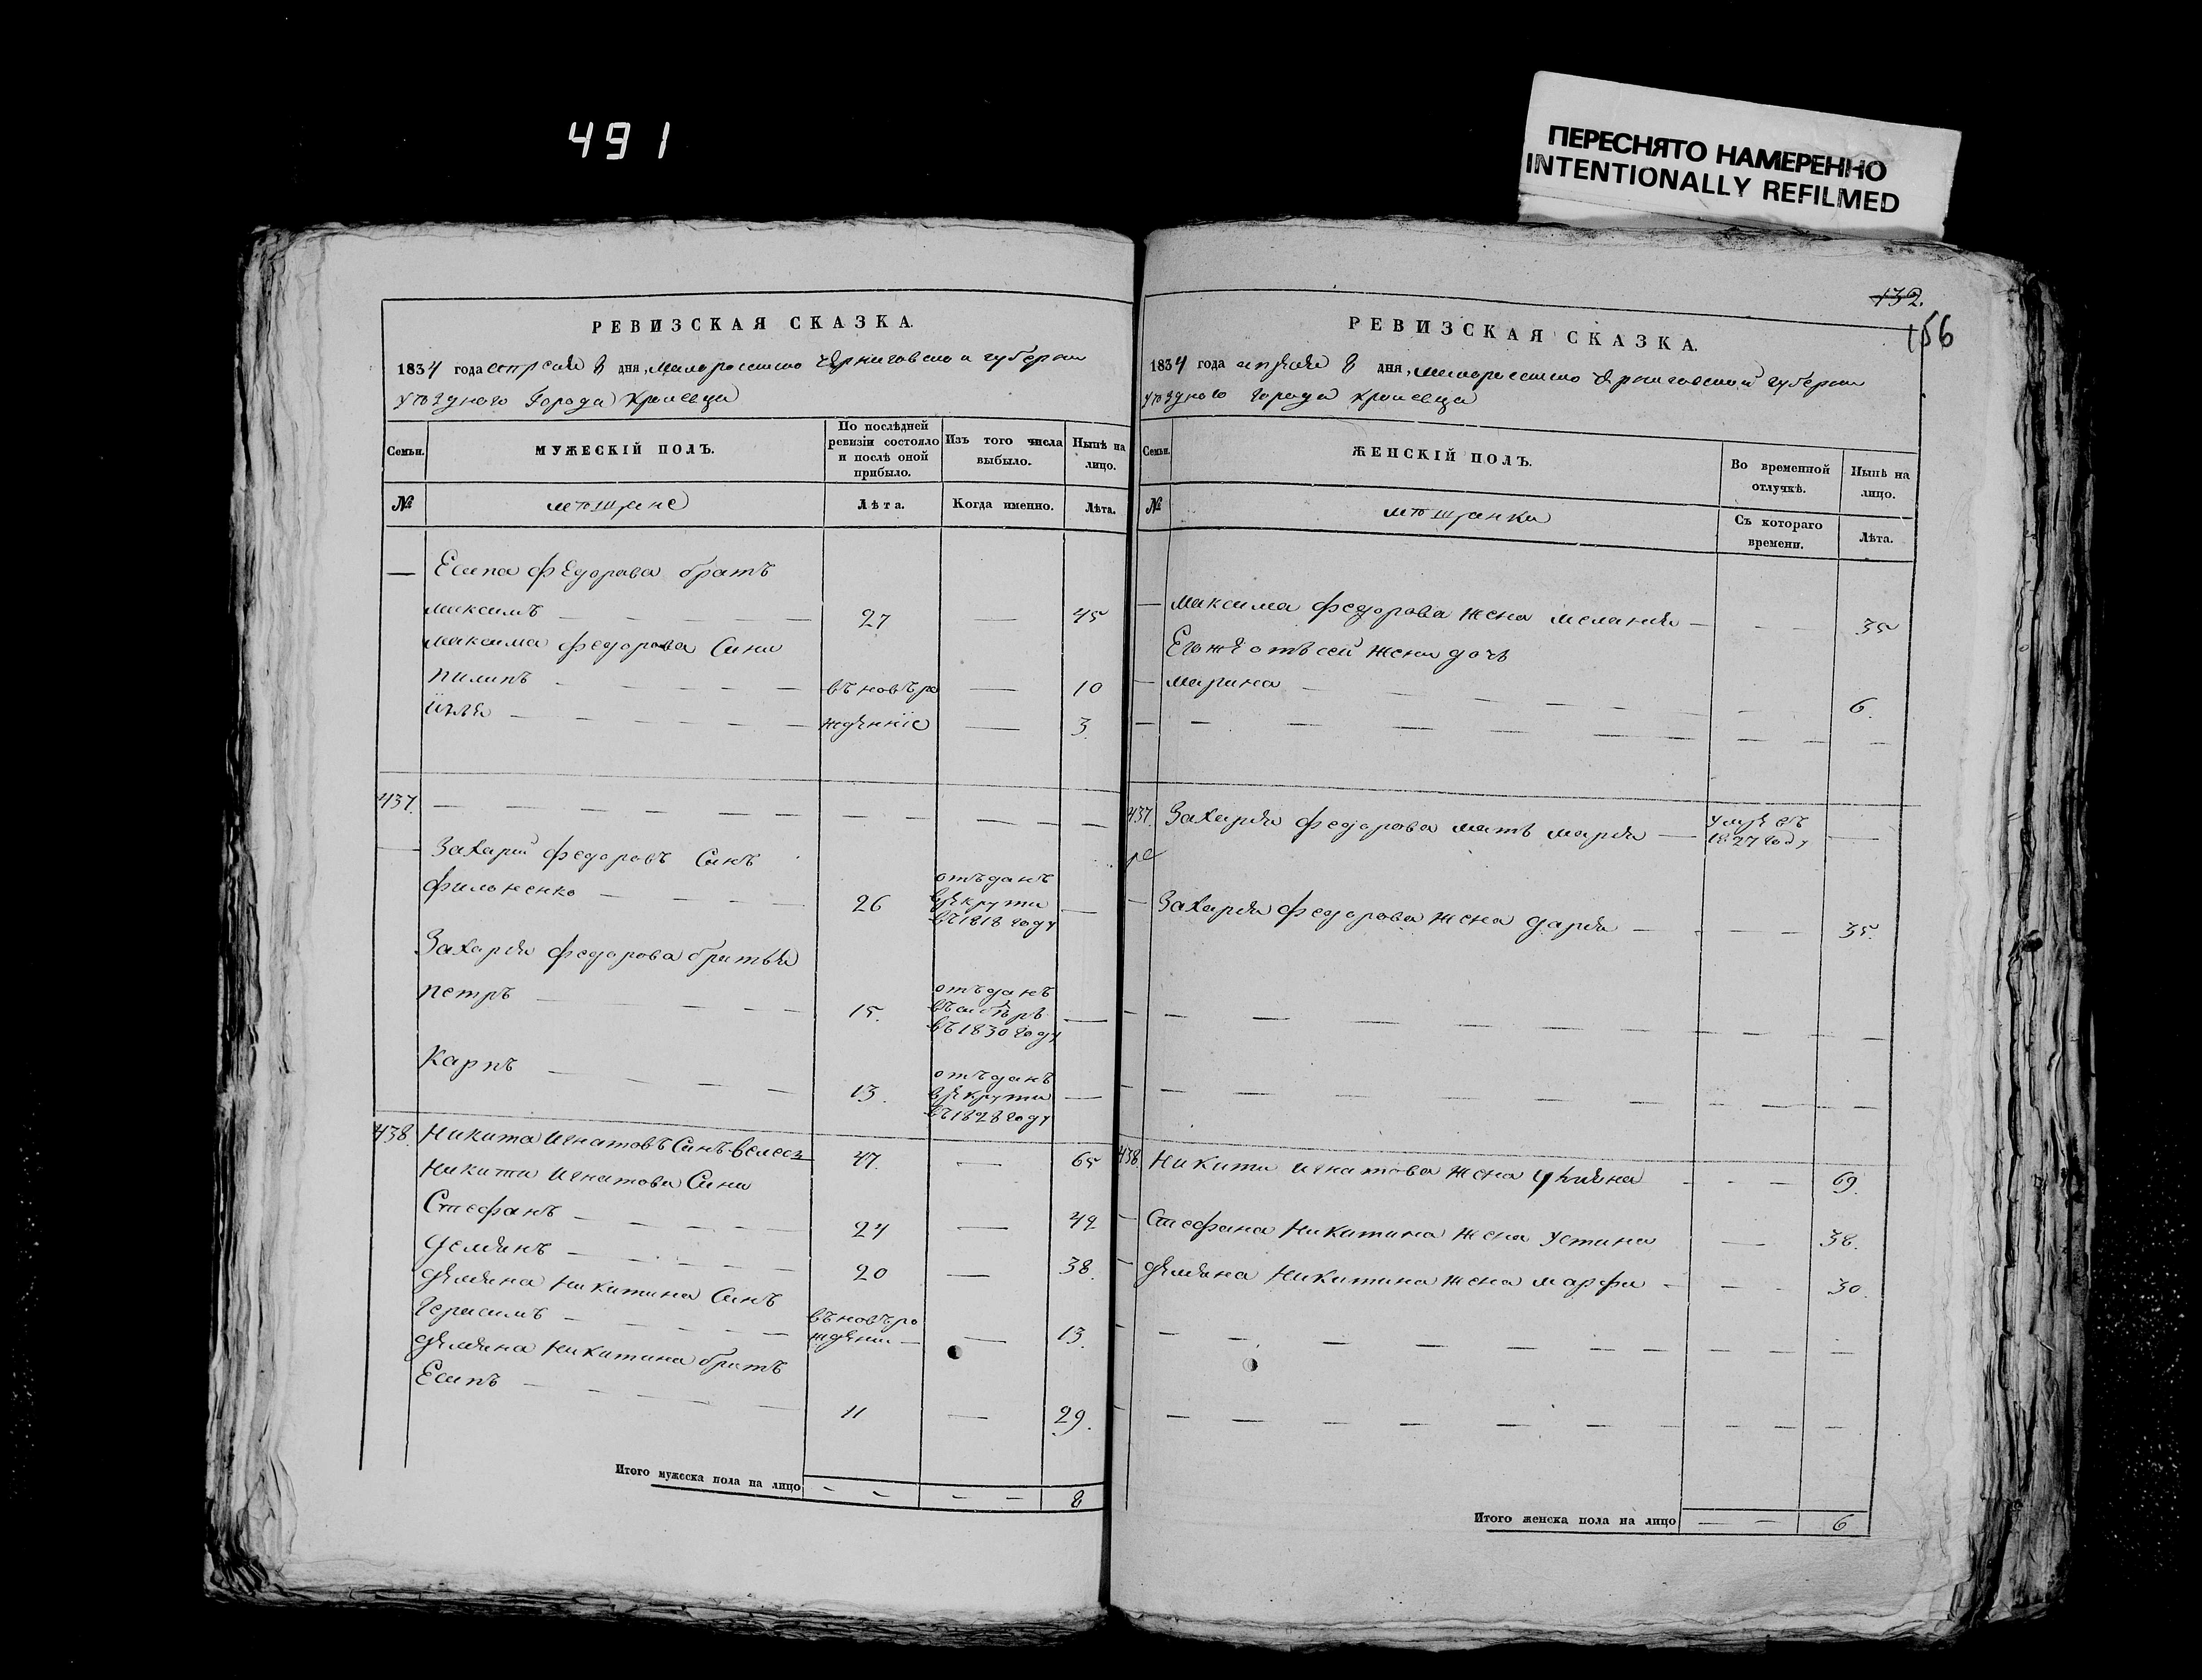 491
ПЕРЕСНЯТО НАМЕРЕННО
INTENTIONALLY REFILMED
РЕВИЗСКАЯ СКАЗКА.
1834 года апреля 8 дня, малоросийско Черниговской губернии
уѣзднаго Города Кролевца
Семьи.
МУЖЕСКІЙ ПОЛЪ.
По послѣдней ревизіи состояло и послѣ оной прибыло.
Изъ того числа выбыло.
Нынѣ на лицо.
№
мѣщане
Лѣта.
Когда именно.
Лѣта.
— Есипа Федорова братъ
максимъ — 27 — 45
максима федорова Сини
пилипъ — въ новъ ро — 10
илія — жденніе — 3.
437. —
— Захарій федоровъ Синъ
филоненко — 26 отъданъ врекрути въ 1818 году —
Захарія федорова братья
петръ — 15. отъданъ въ 1830 году —
Карпъ — 13. отъданъ врекрути въ 1828 году —
438. Никита игнатовъ Синъ 47. — 65
Никити игнатова Сини
Стефанъ — 24 — 42
Демянъ — 20 — 38.
демяна Никитина Синъ
Герасимъ — въ новъ ро ждени — — 13.
демяна Никитина братъ
Есипъ — 11 — 29.
Итого мужеска пола на лицо — — 8
132.
156
РЕВИЗСКАЯ СКАЗКА.
1834 года апреля 8 дня, малоросийско Черниговской губернии
уѣзднаго города кролевца
Семьи.
ЖЕНСКІЙ ПОЛЪ.
Во временной отлучкѣ.
Нынѣ на лицо.
№
мѣщанки
Съ котораго времени.
Лѣта.
— максима федорова жена меланія — 35
Егоже отъ сей жени дочь
— марина — 6.
437. Захарія федорова мать марія — умре въ 1827 году —
— Захарія федорова жена дарія — 35.
438. Никити игнатова жена — 69.
— Стефана Никитина жена устина — 38.
— демяна Никитина жена марфа — 30.
Итого женска пола на лицо — — 6